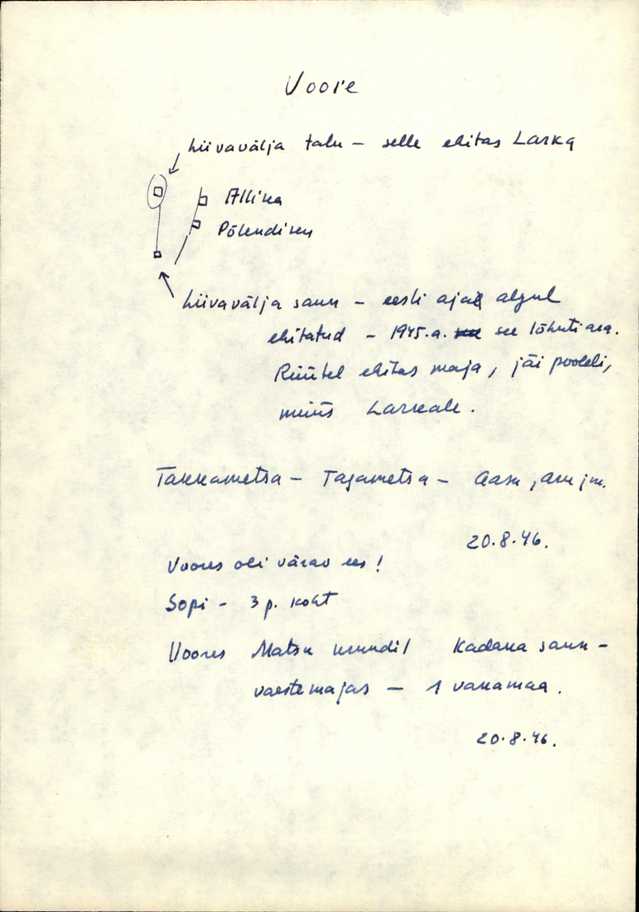 Voore
Liivavälja talu – selle ehitas Larka
Allika
Põlendiku
Liivavälja saun – eesti ajal algul
ehitatud – 1945.a. see lõhuti ära.
Rüütel ehitas maja, jäi pooleli,
müüs Larkale.
Takkametsa – Tagametsa – Aasu, aru jm.
20.8.46.
Voores oli värav ees!
Sopi – 3 p. koht
Voores Matsu krundil Kadaka saun –
vaestemajas – 1 vanamaa.
20.8.46.